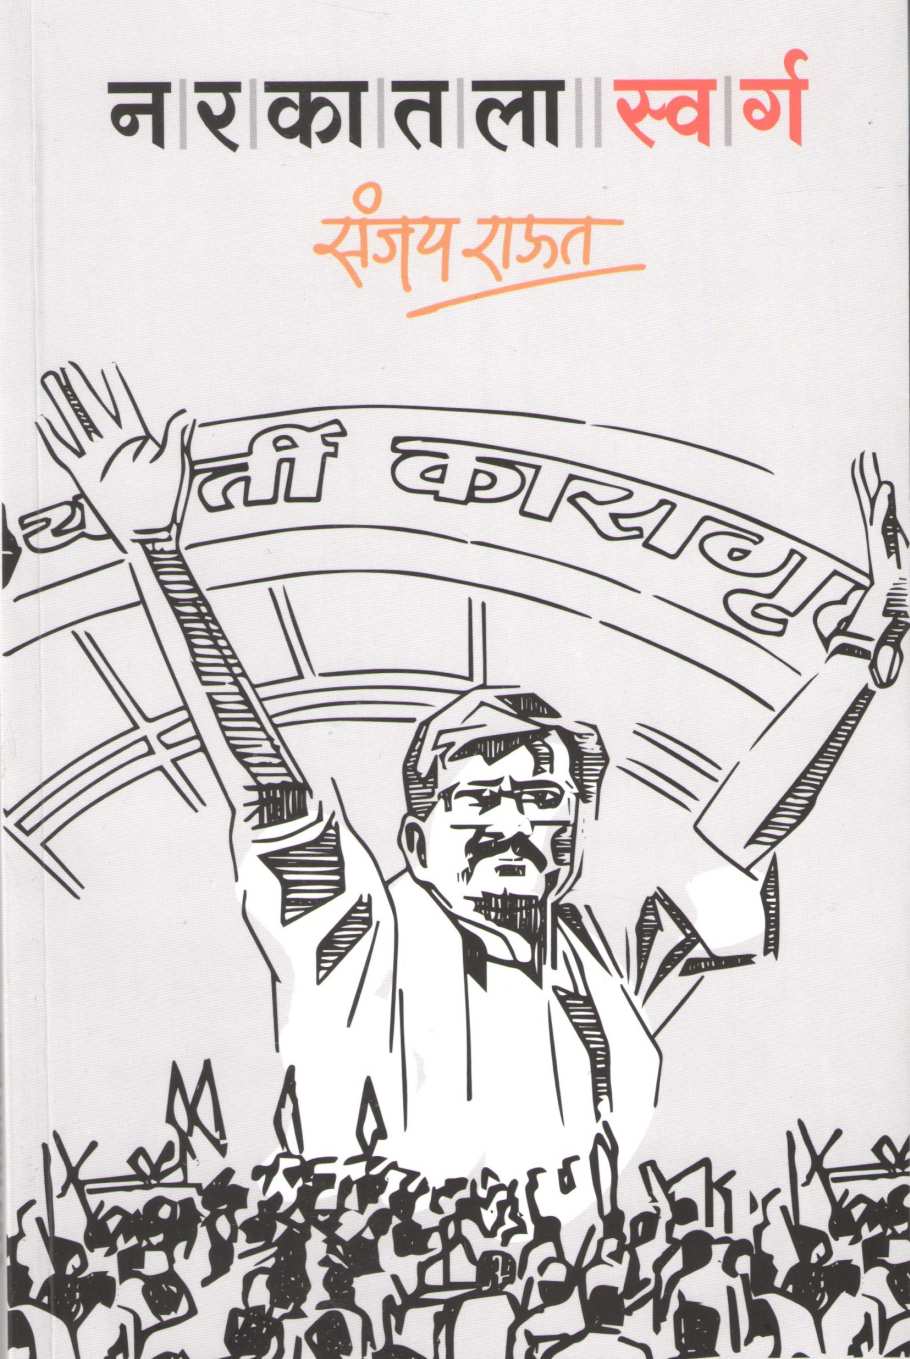 नरकातला स्वर्ग
संजय राऊत
वर्ती कारागृ